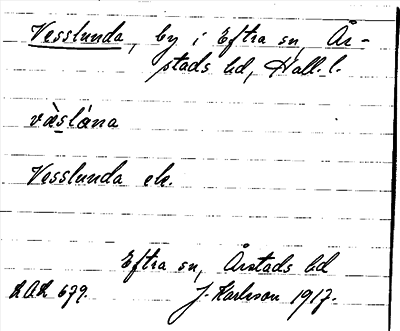 Vesslunda, by i Eftra sn, År-
stads hd, Hall. l.
væslána
Vesslunda ek.
Eftra sn, Årstads hd
KAK 679. J. Karlsson 1917.